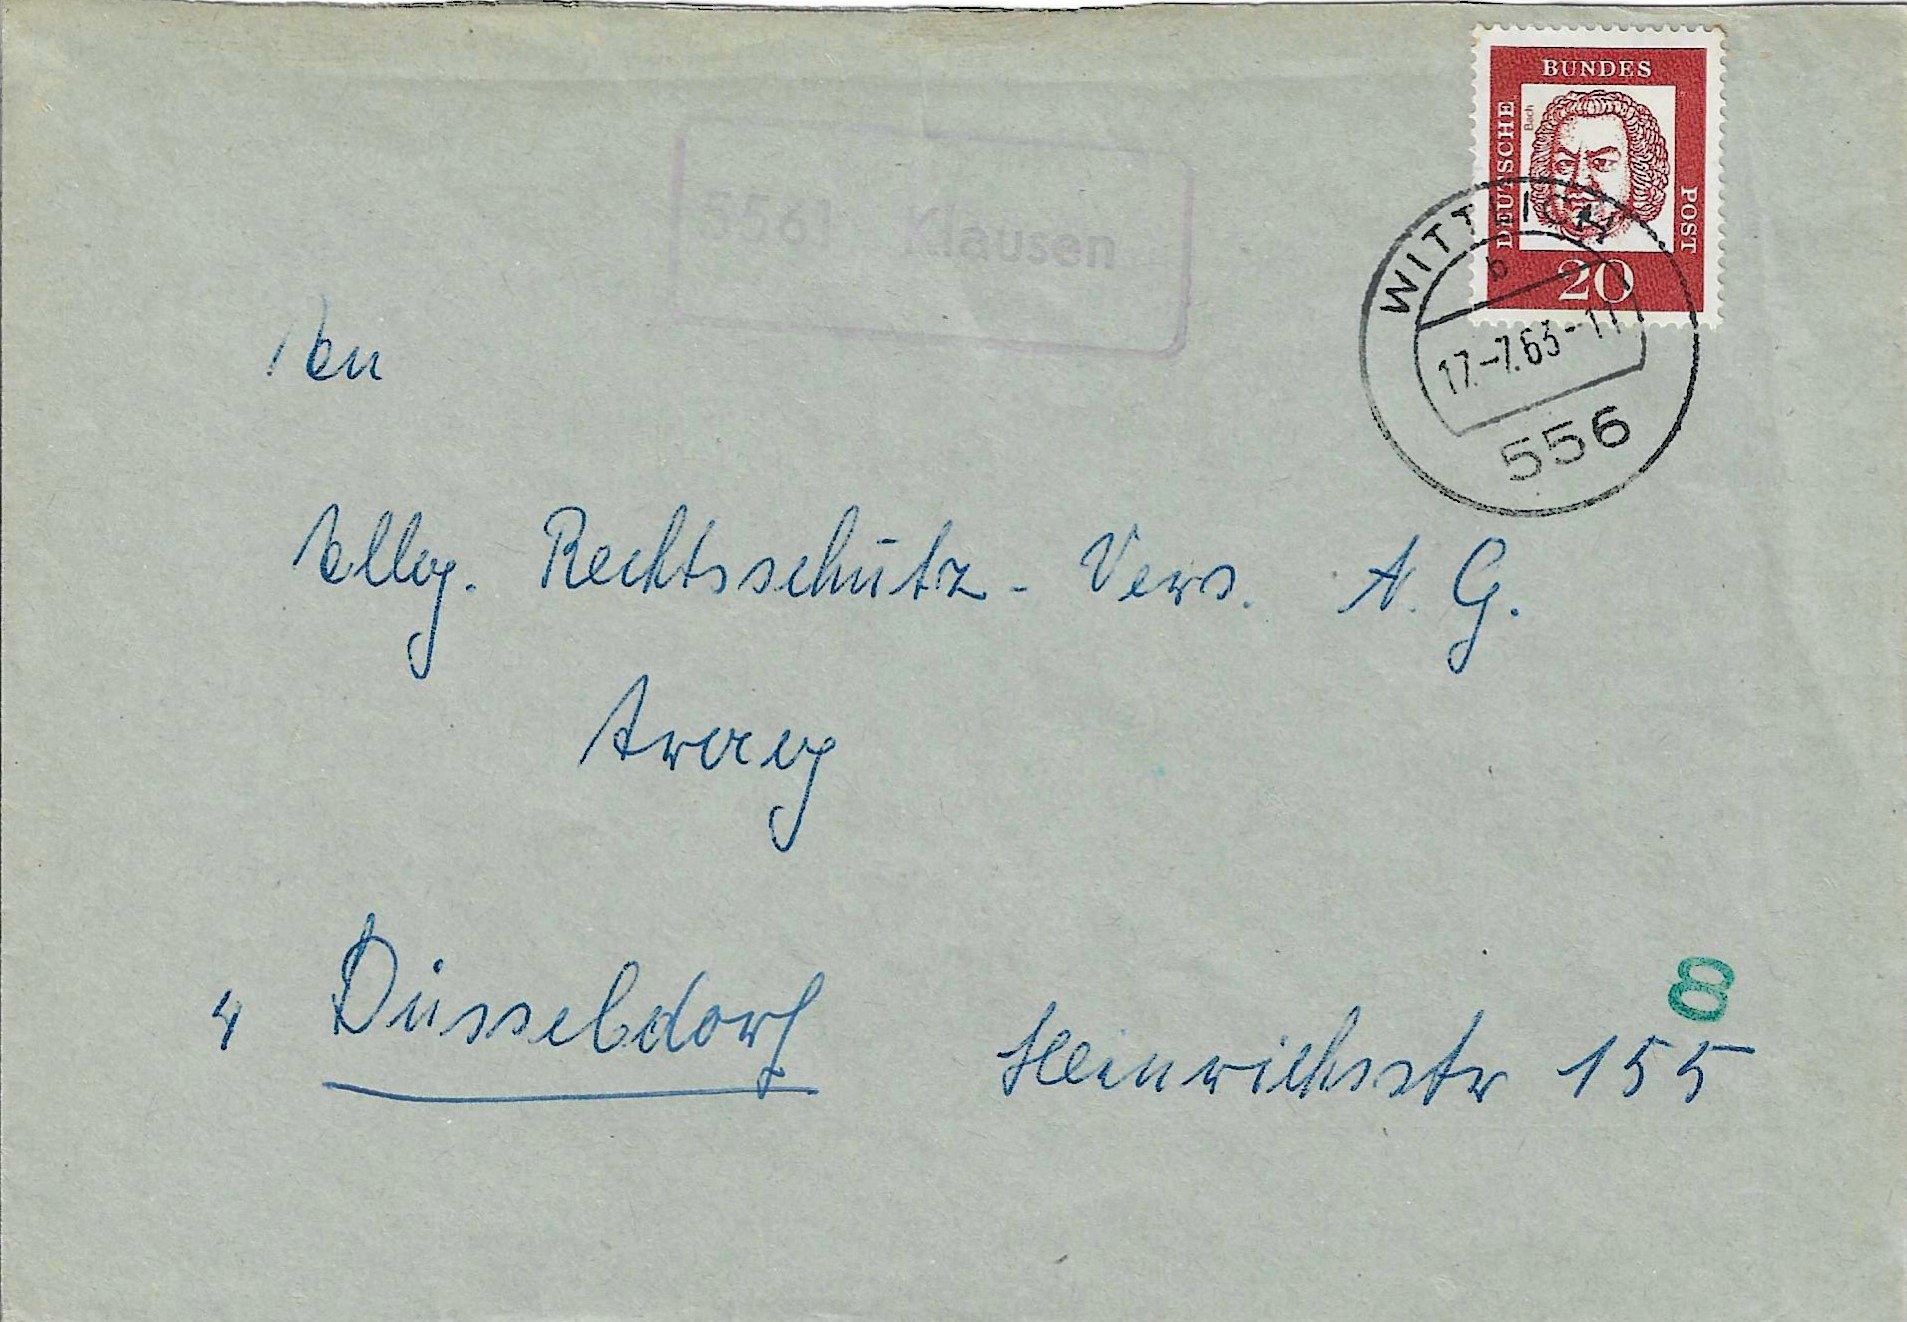 BUNDES
DEUTSCHE
Bach
POST
20
5561 Klausen
WITTLICH
b
17.-7.63-11
556
An
Allg. Rechtsschutz - Vers. A. G.
Arag
4 Düsseldorf Heinrichstr 155
8